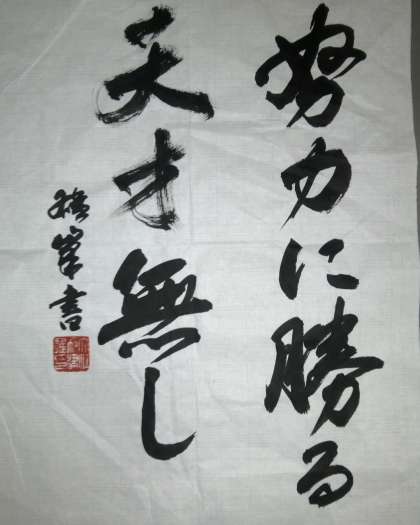 努力に勝る
天才無し
峯書